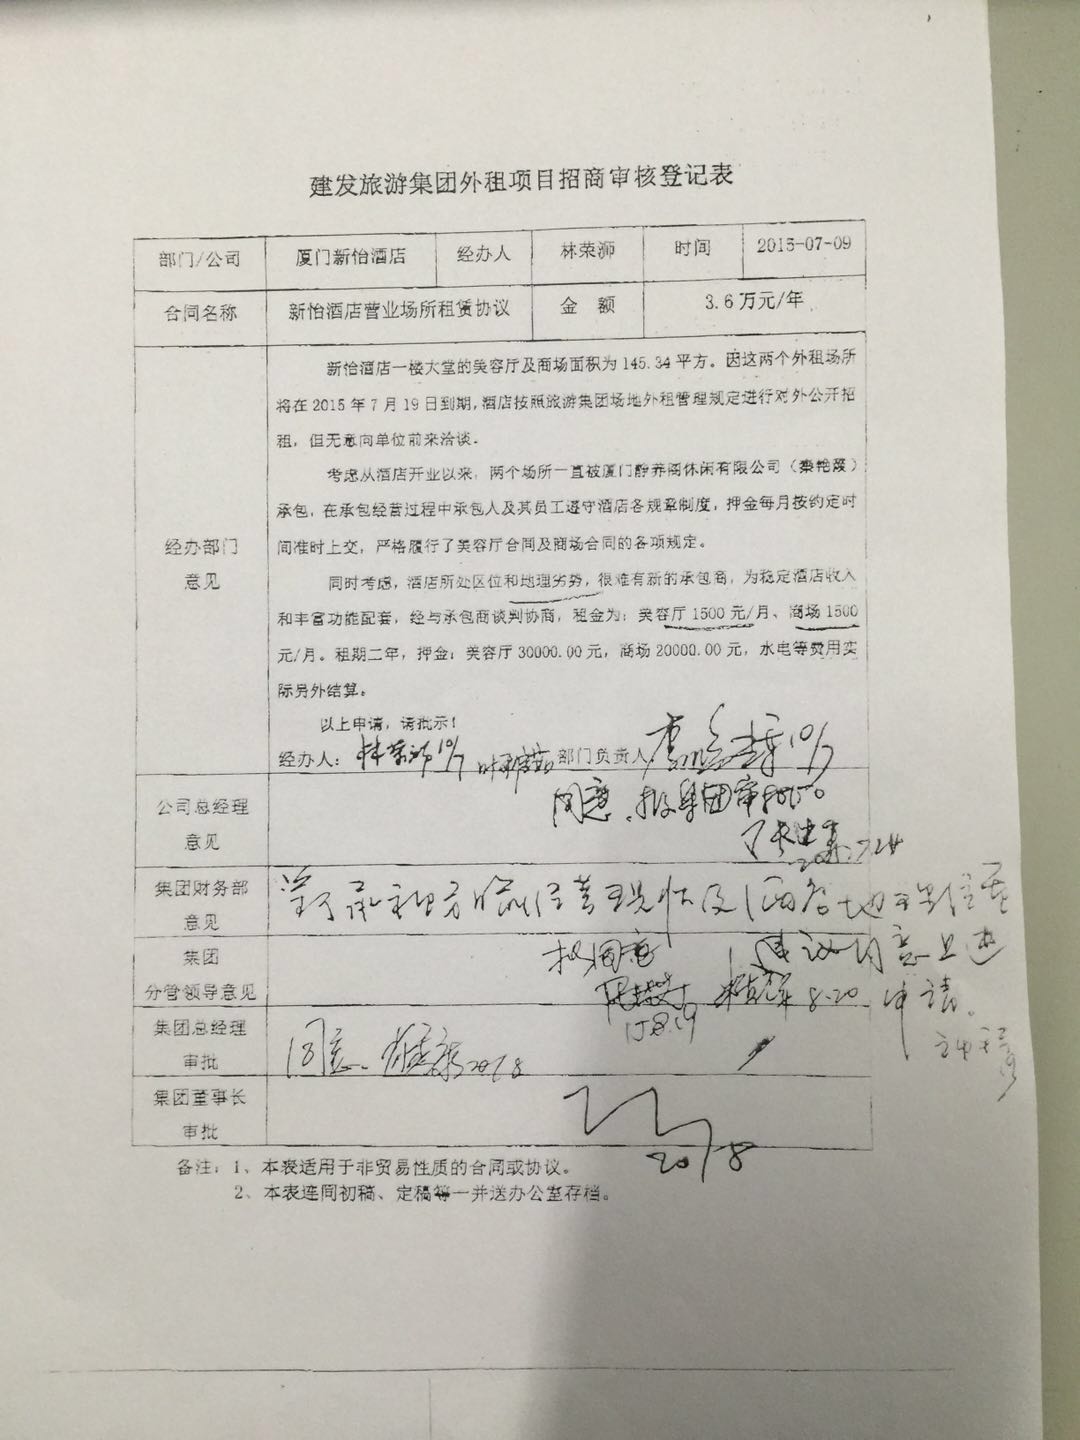 建发旅游集团外租项目招商审核登记表
部门/公司 厦门新怡酒店 经办人 林荣浉 时间 2015-07-09
合同名称 新怡酒店营业场所租赁协议 金 额 3.6万元/年
新怡酒店一楼大堂的美容厅及商场面积为145.34平方。因这两个外租场所
将在2015年7月19日到期,酒店按照旅游集团场地外租管理规定进行对外公开招
租,但无意向单位前来洽谈。
考虑从酒店开业以来,两个场所一直被厦门静养阁休闲有限公司(秦艳霞)
承包,在承包经营过程中承包人及其员工遵守酒店各规章制度,押金每月按约定时
间准时上交,严格履行了美容厅合同及商场合同的各项规定。
经办部门
意见
同时考虑,酒店所处区位和地理劣势,很难有新的承包商,为稳定酒店收入
和丰富功能配套,经与承包商谈判协商,租金为:美容厅1500元/月、商场1500
元/月。租期二年,押金:美容厅30000.00元,商场20000.00元,水电等费用实
际另外结算。
以上申请,请批示!
经办人: 林荣浉 10/7 部门负责人 10/7
公司总经理
意见
同意,报集团审批。
集团财务部
意见
集团
分管领导意见
拟同意
建议同意上述
申请。
15.8.19
8.20
集团总经理
审批
同意
20/8
集团董事长
审批
20/8
备注:1、本表适用于非贸易性质的合同或协议。
2、本表连同初稿、定稿等一并送办公室存档。